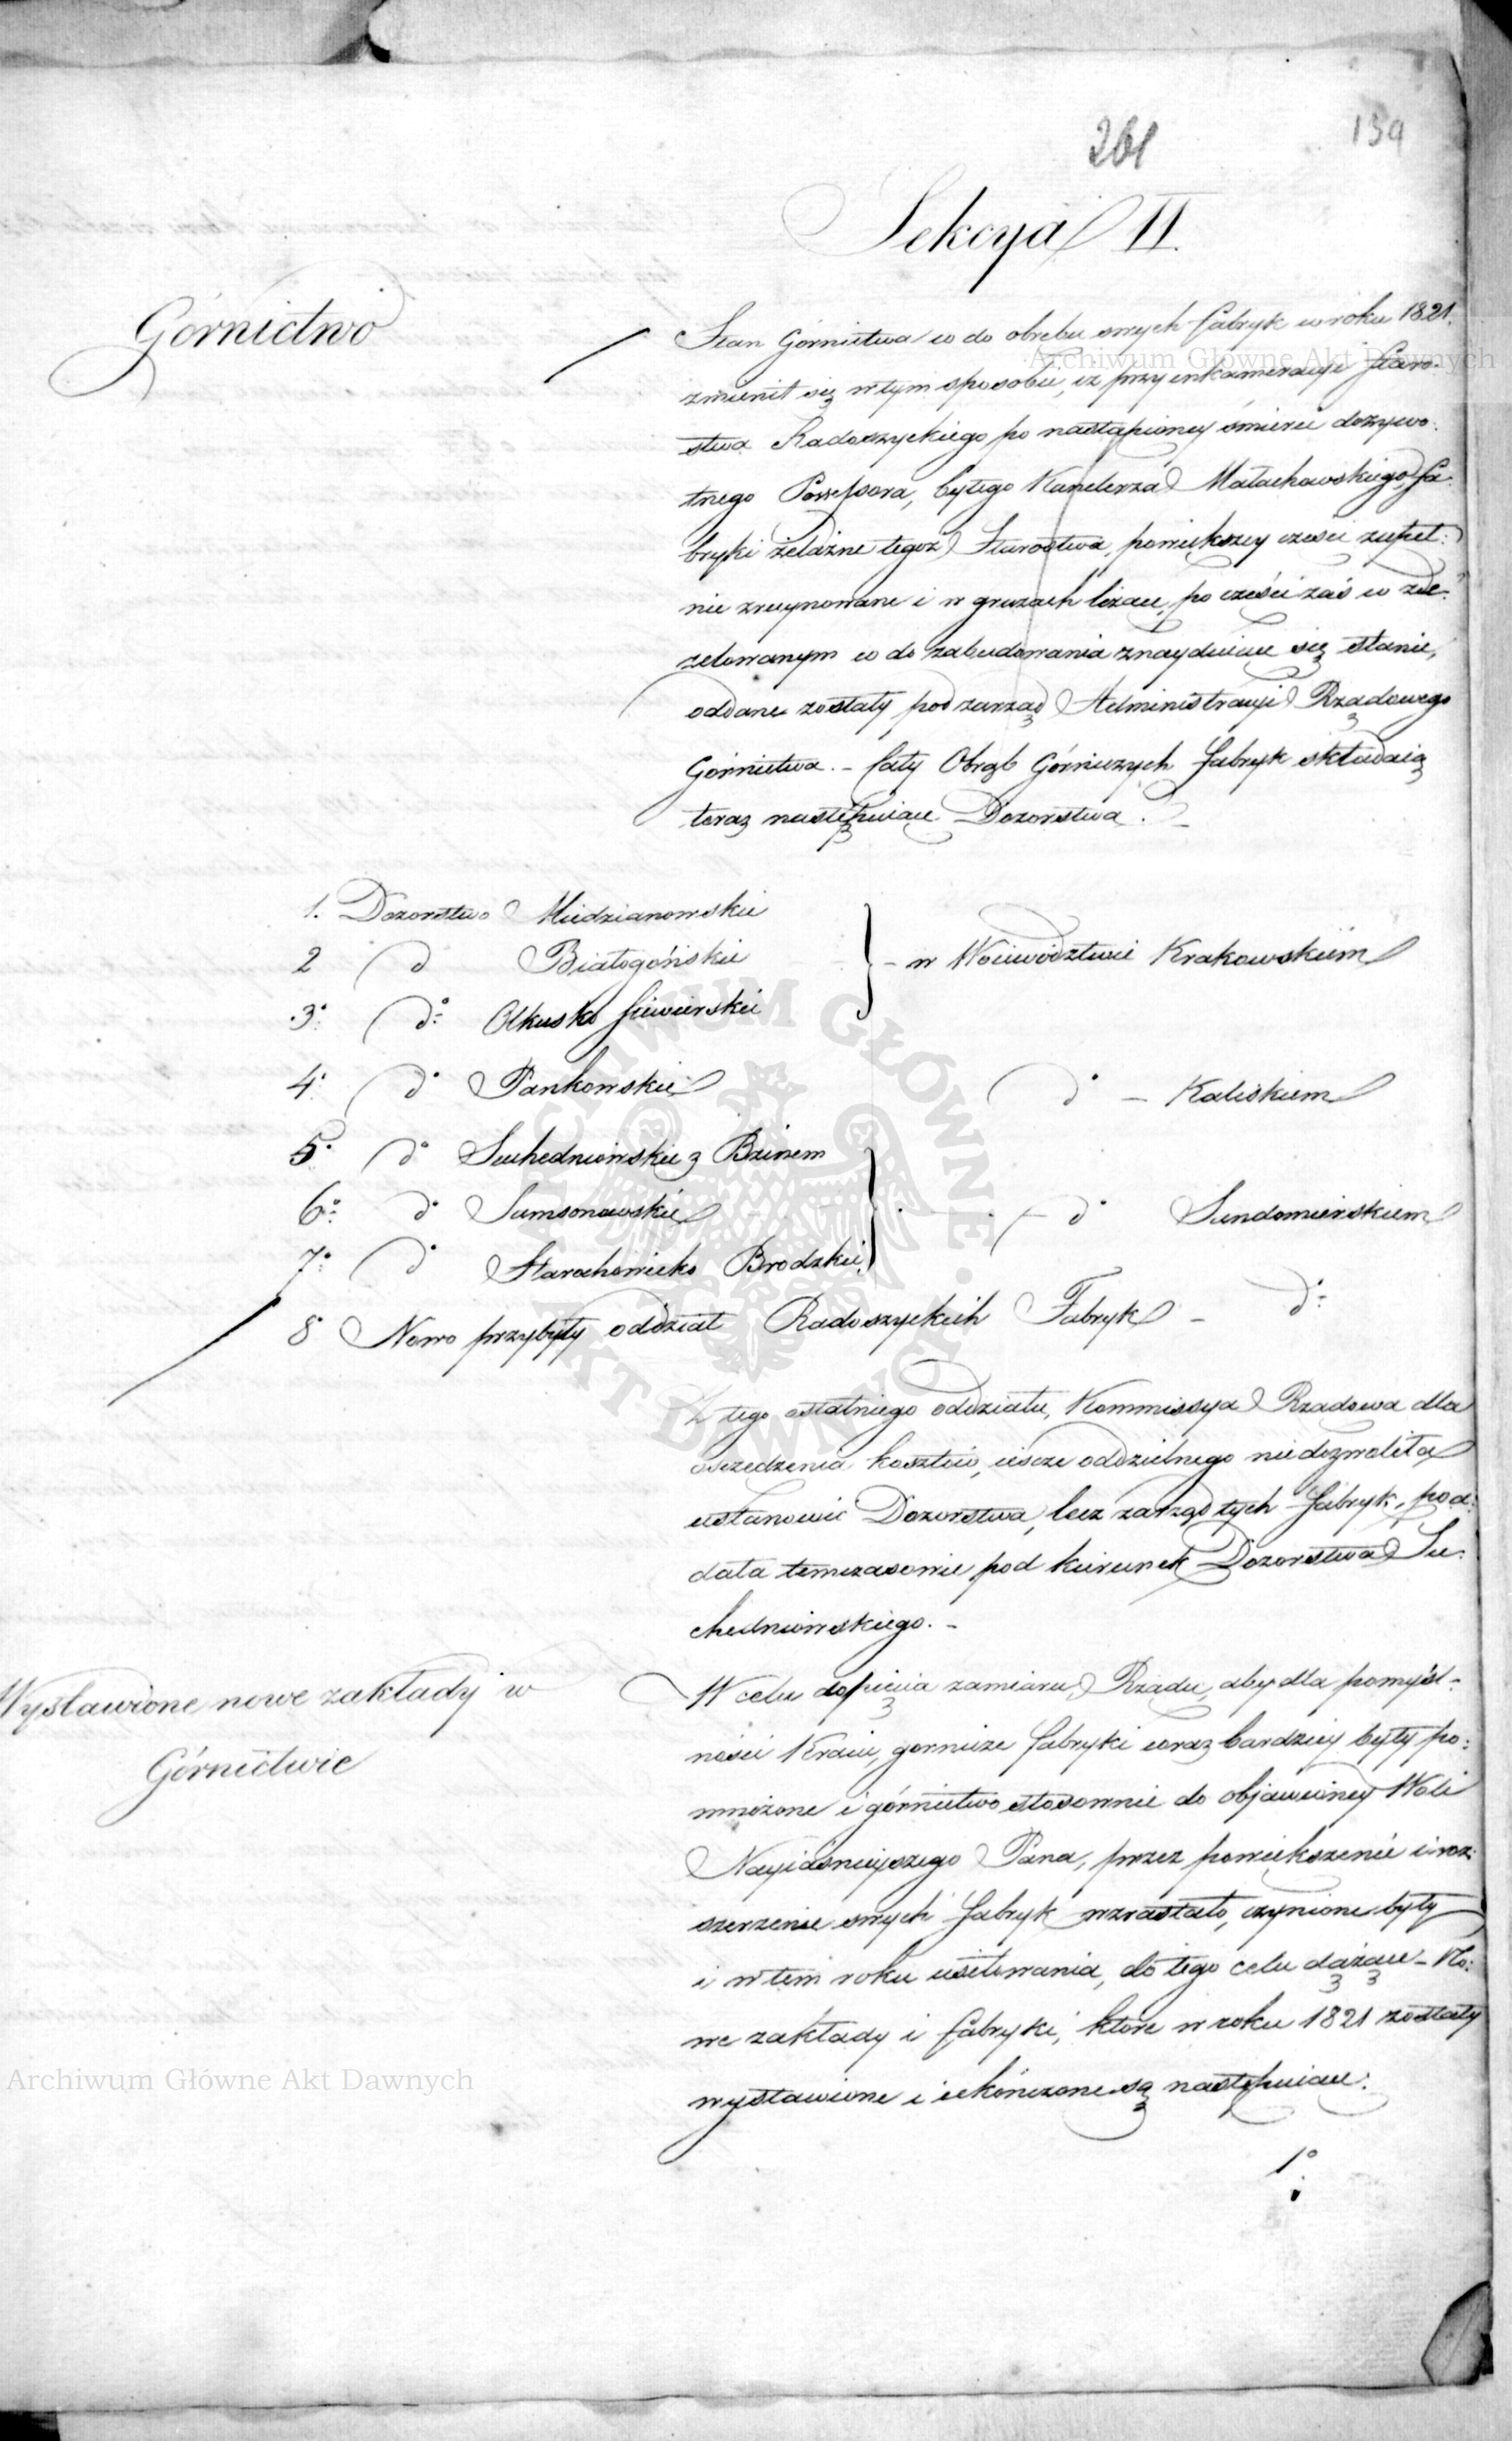 261
139
Sekcya II.
Górnictwo
Stan Górnictwa co do obrębu swych fabryk w roku 1821.
zmienił się w tym sposobie, iż przy inkameracyi Staro-
stwa Radoszyckiego po nastąpioney śmierci dożywo-
tnego Possessora, byłego Kanclerza Małachowskiego, fa-
bryki żelazne tegoż Starostwa, powiększey części zupeł-
nie zruynowane i w gruzach leżące, po części zaś w zde-
zelowanym co do zabudowania znayduiące się stanie,
oddane zostały pod zarząd Administracyi Rządowego
Górnictwa. – Cały Obręb Górniczych fabryk składaią
teraz następuiące Dozorstwa. –
1. Dozorstwo Miedzianowskie
2 d Białogońskie
3° d° Olkusko Siewierskie
} – w Woiewództwie Krakowskiem
4° d° Pankowskie d° – Kaliskiem
5° d° Suchedniowskie z Bzinem
6° d° Samsonowskie
7° d° Starachowicko Brodzkie
} d° Sandomierskiem
8 Nowo przybyły oddział Radoszyckich Fabryk – d°
Z tego ostatniego oddziału, Kommissya Rządowa dla
oszczędzenia kosztów, ieszcze oddzielnego niedozwoliła
ustanowić Dozorstwa, lecz zarząd tych fabryk, pod-
dała temczasowie pod kierunek Dozorstwa Su-
chedniowskiego. –
Wystawione nowe zakłady w
Górnictwie
W celu dopięcia zamiaru Rządu, aby dla pomyśl-
ności Kraiu, gornicze fabryki coraz bardziey były po-
mnożone i górnictwo stosownie do objawioney Woli
Nayiaśnieyszego Pana, przez powiększenie i roz-
szerzenie swych fabryk wzrastało, czynione były
i w tem roku usiłowania, do tego celu dążące – No-
we zakłady i fabryki, które w roku 1821 zostały
wystawione i ukończone są następuiące:
1°
Archiwum Główne Akt Dawnych
Archiwum Główne Akt Dawnych
ARCHIWUM GŁÓWNE AKT DAWNYCH